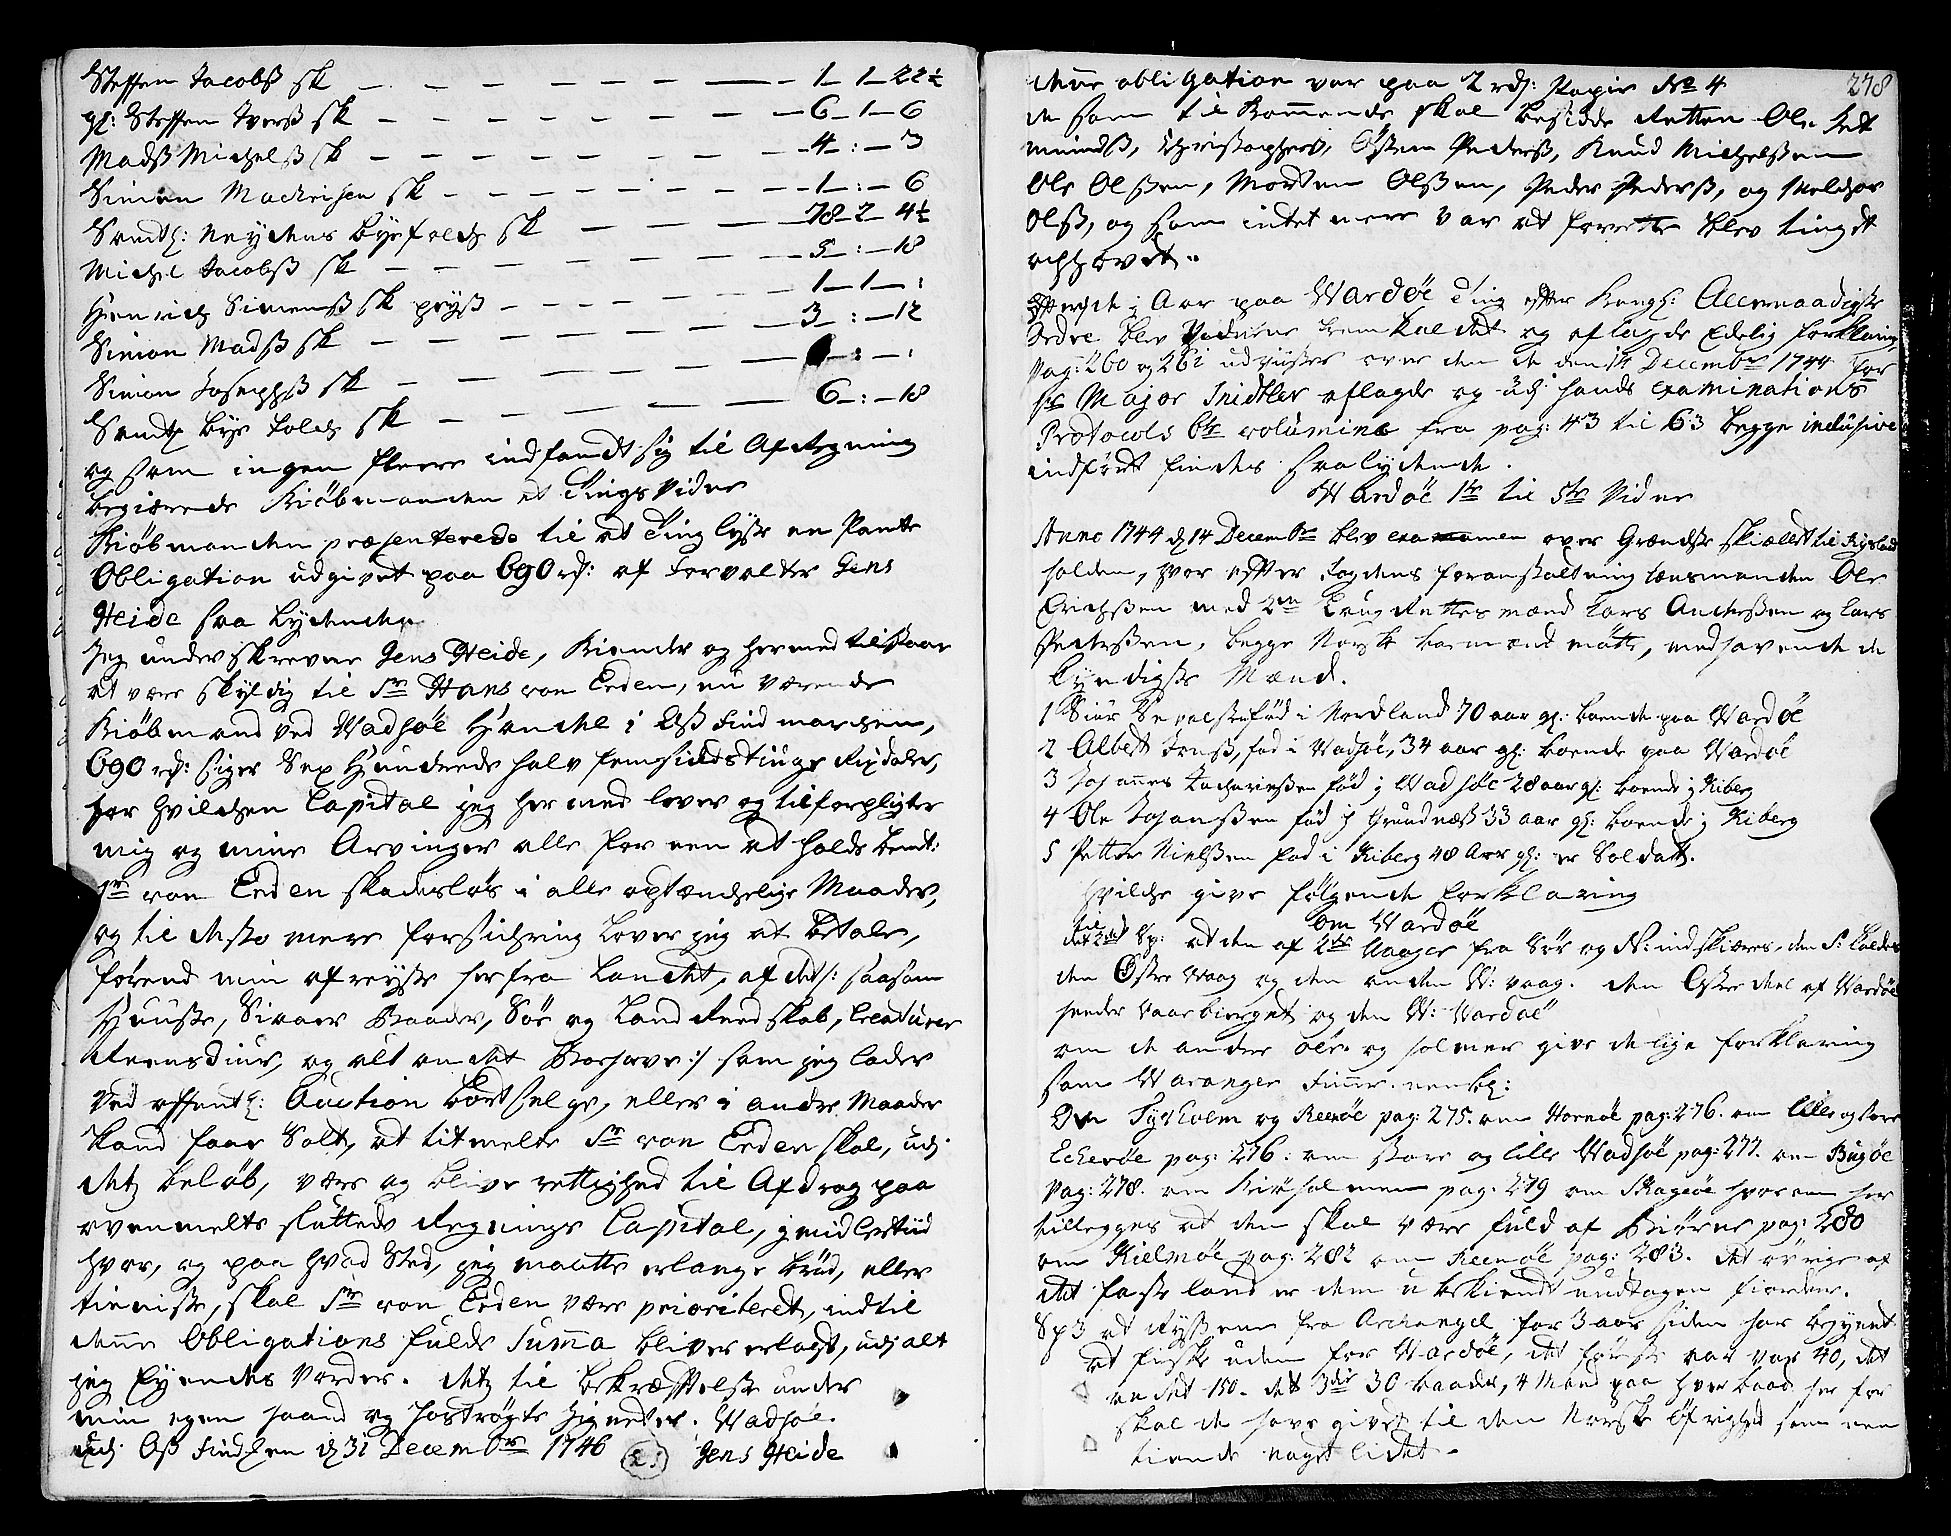 Steffen Jacobß sk — — — — — 1 — 1 — 22½
gl: Steffen Iverß sk — — — — — 6 — 1 — 6
Madß Michelß sk — — — — — 4 — : — 3
Simon Mackeisen sk — — — — — 1 — : — 6
Samtl: Neydens Byefolch sk — — — 78 — 2 — 4½
Michel Jacobß sk — — — — — 5 — : — 18
Henrich Simenß sk — — — — 1 — 1 — :
Simon Madß sk — — — — 3 — : — 12
Simon Josephß sk — — — — : — :
Samtl Bye folch sk — — — — 6 — : — 18
og som ingen fleere indfandt sig til Afregning
begierede Kiöbmanden et Tings Vidne
Kiöbmanden præsenterede til at Tinglyse en Pante
Obligation udgivet paa 690 rd: af Forvalter Jens
Heide saa Lydende
Jeg underskrevne Jens Heide, Kiender og hermed tilstaar
at være skyldig til Sr Hans von Eeden, nu værende
Kiöbmand ved Wadsöe Handel i Ost Findmarchen,
690 rd: siger Sex Hundrede halv femsindstiuge Rixdaler,
for hvilchen Capital jeg hermed lover og tilforpligter
mig og mine Arvinger alle for een at holde bemte:
Sr von Eeden skadeslös i alle optænchelige Maader,
og til desto mere forsichring Lover jeg at betale,
förend min afreyse her fra Landet, af det: saasom
Huuse, Baader, Söe og Land Reedskab, Creaturer
Reensdiur, og alt andet Boehave :/ som jeg lader
ved offentl: Auction bortselge, eller i andre Maader
kand faae Solt, at titmelte Sr von Eeden skal, udj
dets belöb, være og blive rettighed til Afdrag paa
ovenmelte sluttede Regnings Capital, jmidlertiid
hvor, og paa hvad Sted, jeg maatte erlange bröd, eller
tieniste, skal Sr von Eeden være prioriteret, indtil
denne Obligations fulde Summa bliver erlagt, udj alt
jeg Eyendes vorder. dets til bekræfftelse under
min egen haand og hoströgte Signeter. Wadsöe
udj Ost Findhen d 31 Decembr 1746 (LS) Jens Heide
278
denne obligation var paa 2 rd: Papir No 4
de som til Kommende skal besidde Retten Ole
Christophers, Östen Pederß, Knud Michelßen
Ole Olßen, Morten Olßen, Peder Pederß, og Melchior
Olß, og som intet mere var at forrette blev tinget
ophævet.
j Aar paa Wardöe Ting efter Kongl: Allernaadigste
Ordre blev Vidnerne fremkaldet og aflagde Edelig forklaring
pag: 260 og 261 udviiser over den de den 14 Decembr 1744 for
hr Major Snidtler aflagde og udj hands examinations
Protocols 6te volumine fra pag: 43 til 63 begge inclusive
indfört findes saalydende.
Wardöe 1te til 5te Vidne
Anno 1744 d 14 Decembr blev examen over Grændse skiællet til Rysland
holden, hvor efter fogdens foranstaltning Lensmanden Ole
Erichßen med 2de Laug Rettes mænd Lars Anderßen og Lars
Pederßen, begge Norske boemænd mötte, medhavende de
kyndigste Mænd.
1 Siur född i Nordland 70 aar gl: boende paa Wardöe
2 Albert Jenß, föd i Vadsöe, 34 aar gl: boende paa Wardöe
3 Johannes Zachariaßen född j Wadsöe 28 aar gl: boende j Kiberg
4 Ole Johanßen född j Grundnæß 33 aar gl: boende j Kiberg
5 Petter Nielßen föd i Kiberg 48 Aar gl: er Soldatt.
hvilche give fölgende forklaring
om Wardöe
til det 2det Sp: at den af 2de Vaager fra Sör og N: indskiæres, den S: kaldes
den Östre Vaag og den anden W: vaag. den Östre deel af Wardöe
heeder Vaarbierget og den W: Wardöe
om de andre öer og holmer give de lige forklaring
som Waranger Finner. nembl:
Om Tyvholm og Reenöe pag: 275. om Hornöe pag: 276. om lille og store
Eckeröe pag: 276: om store og lille Wadsöe pag: 277. om Bugöe
pag: 278. om Kirkholmen pag: 279 om Skogeröe hvor om her
tillegges at den skal være fuld af Biörne pag: 280
om Kielmöe pag: 282 om Reenöe pag: 283. det övrige af
det faste land er dem ubekiendt undtagen fiorder.
Sp 3 at Rysserne fra Archangel for 3 aar siden har begynt
at fiske uden for Wardöe, det förste aar var 40, det
andet 150. det 3die 30 baader, 4 Mand paa hver baad her for
skal de have givet til den Norske öfrighed som een
tiende noget lidet.